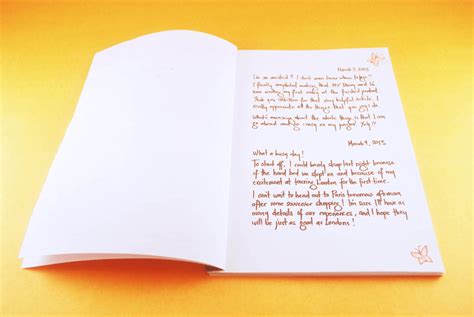 March 7, 2013
I'm so excited! I don't even know where to begin!!
I finally completed making that DIY Diary and I'm
now writing my first entry on the freshest product.
Thank you wikiHow for that very helpful article. I
really appreciate all the things that you guys do.
What's awesome about the whole thing is that I can
go ahead crazy on my pages! Yay!!
March 9, 2013
What a busy day!
To start off, I could barely sleep last night because
of the hard bed we slept on and because of my
excitement at touring London for the first time.
I can't wait to head out to Paris tomorrow afternoon
after some souvenir shopping! I'm sure I'll have as
many details of our experiences, and I hope they
will be just as good as London's!